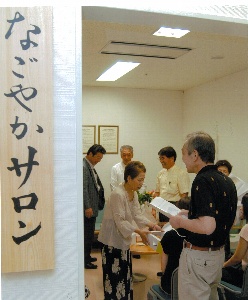 なごやかサロン